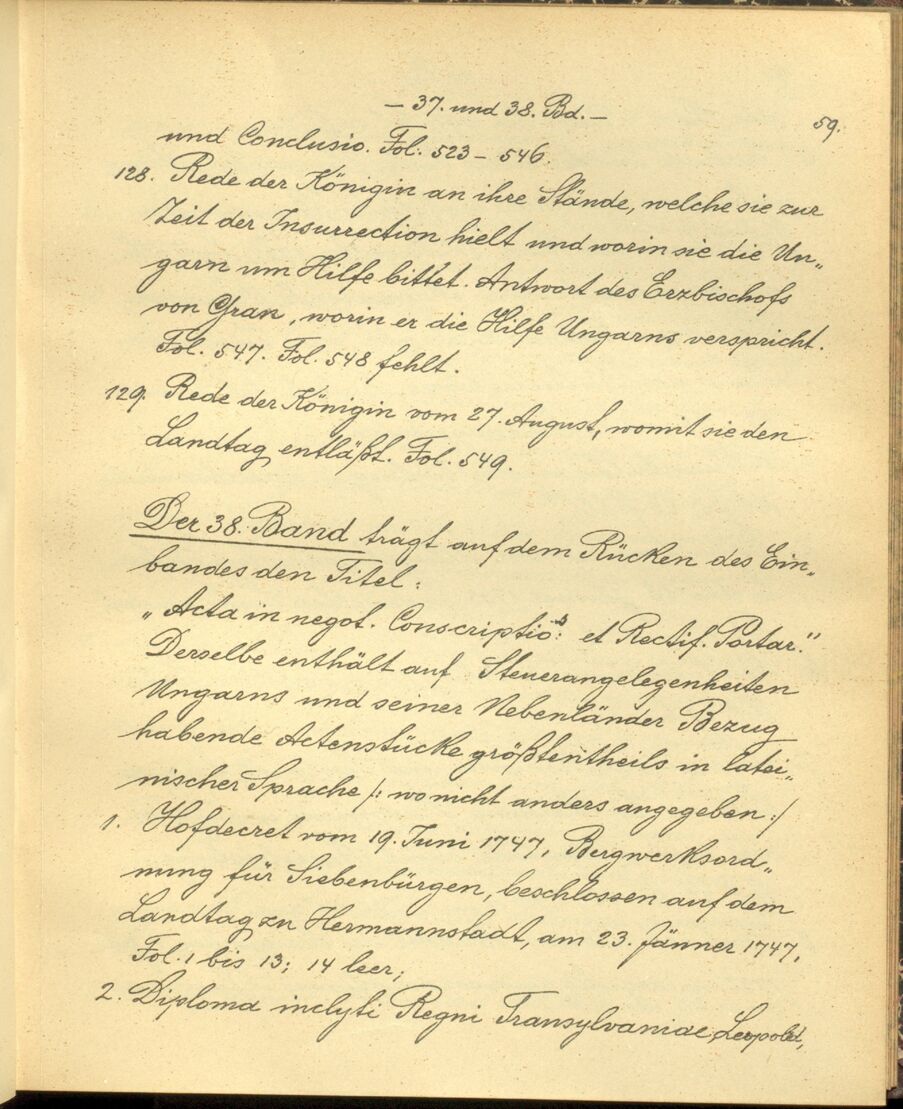 — 37. und 38. Bd. —
59.
und Conclusio. Fol. 523 – 546.
128. Rede der Königin an ihre Stände, welche sie zur
Zeit der Insurrection hielt und worin sie die Un„
garn um Hilfe bittet. Antwort des Erzbischofs
von Gran, worin er die Hilfe Ungarns verspricht.
Fol. 547. Fol. 548 fehlt.
129. Rede der Königin vom 27. August, womit sie den
Landtag entläßt. Fol. 549.
Der 38. Band trägt auf dem Rücken des Ein„
bandes den Titel:
„Acta in negot. Conscriptio:s et Rectif. Portar.“
Derselbe enthält auf Steuerangelegenheiten
Ungarns und seiner Nebenländer Bezug
habende Actenstücke größtentheils in latei„
nischer Sprache /: wo nicht anders angegeben :/
1. Hofdecret vom 19. Juni 1747, Bergwerksord„
nung für Siebenbürgen, beschlossen auf dem
Landtag zu Hermannstadt, am 23. Jänner 1747,
Fol. 1 bis 13; 14 leer;
2. Diploma inclyti Regni Transylvaniae, Leopold,